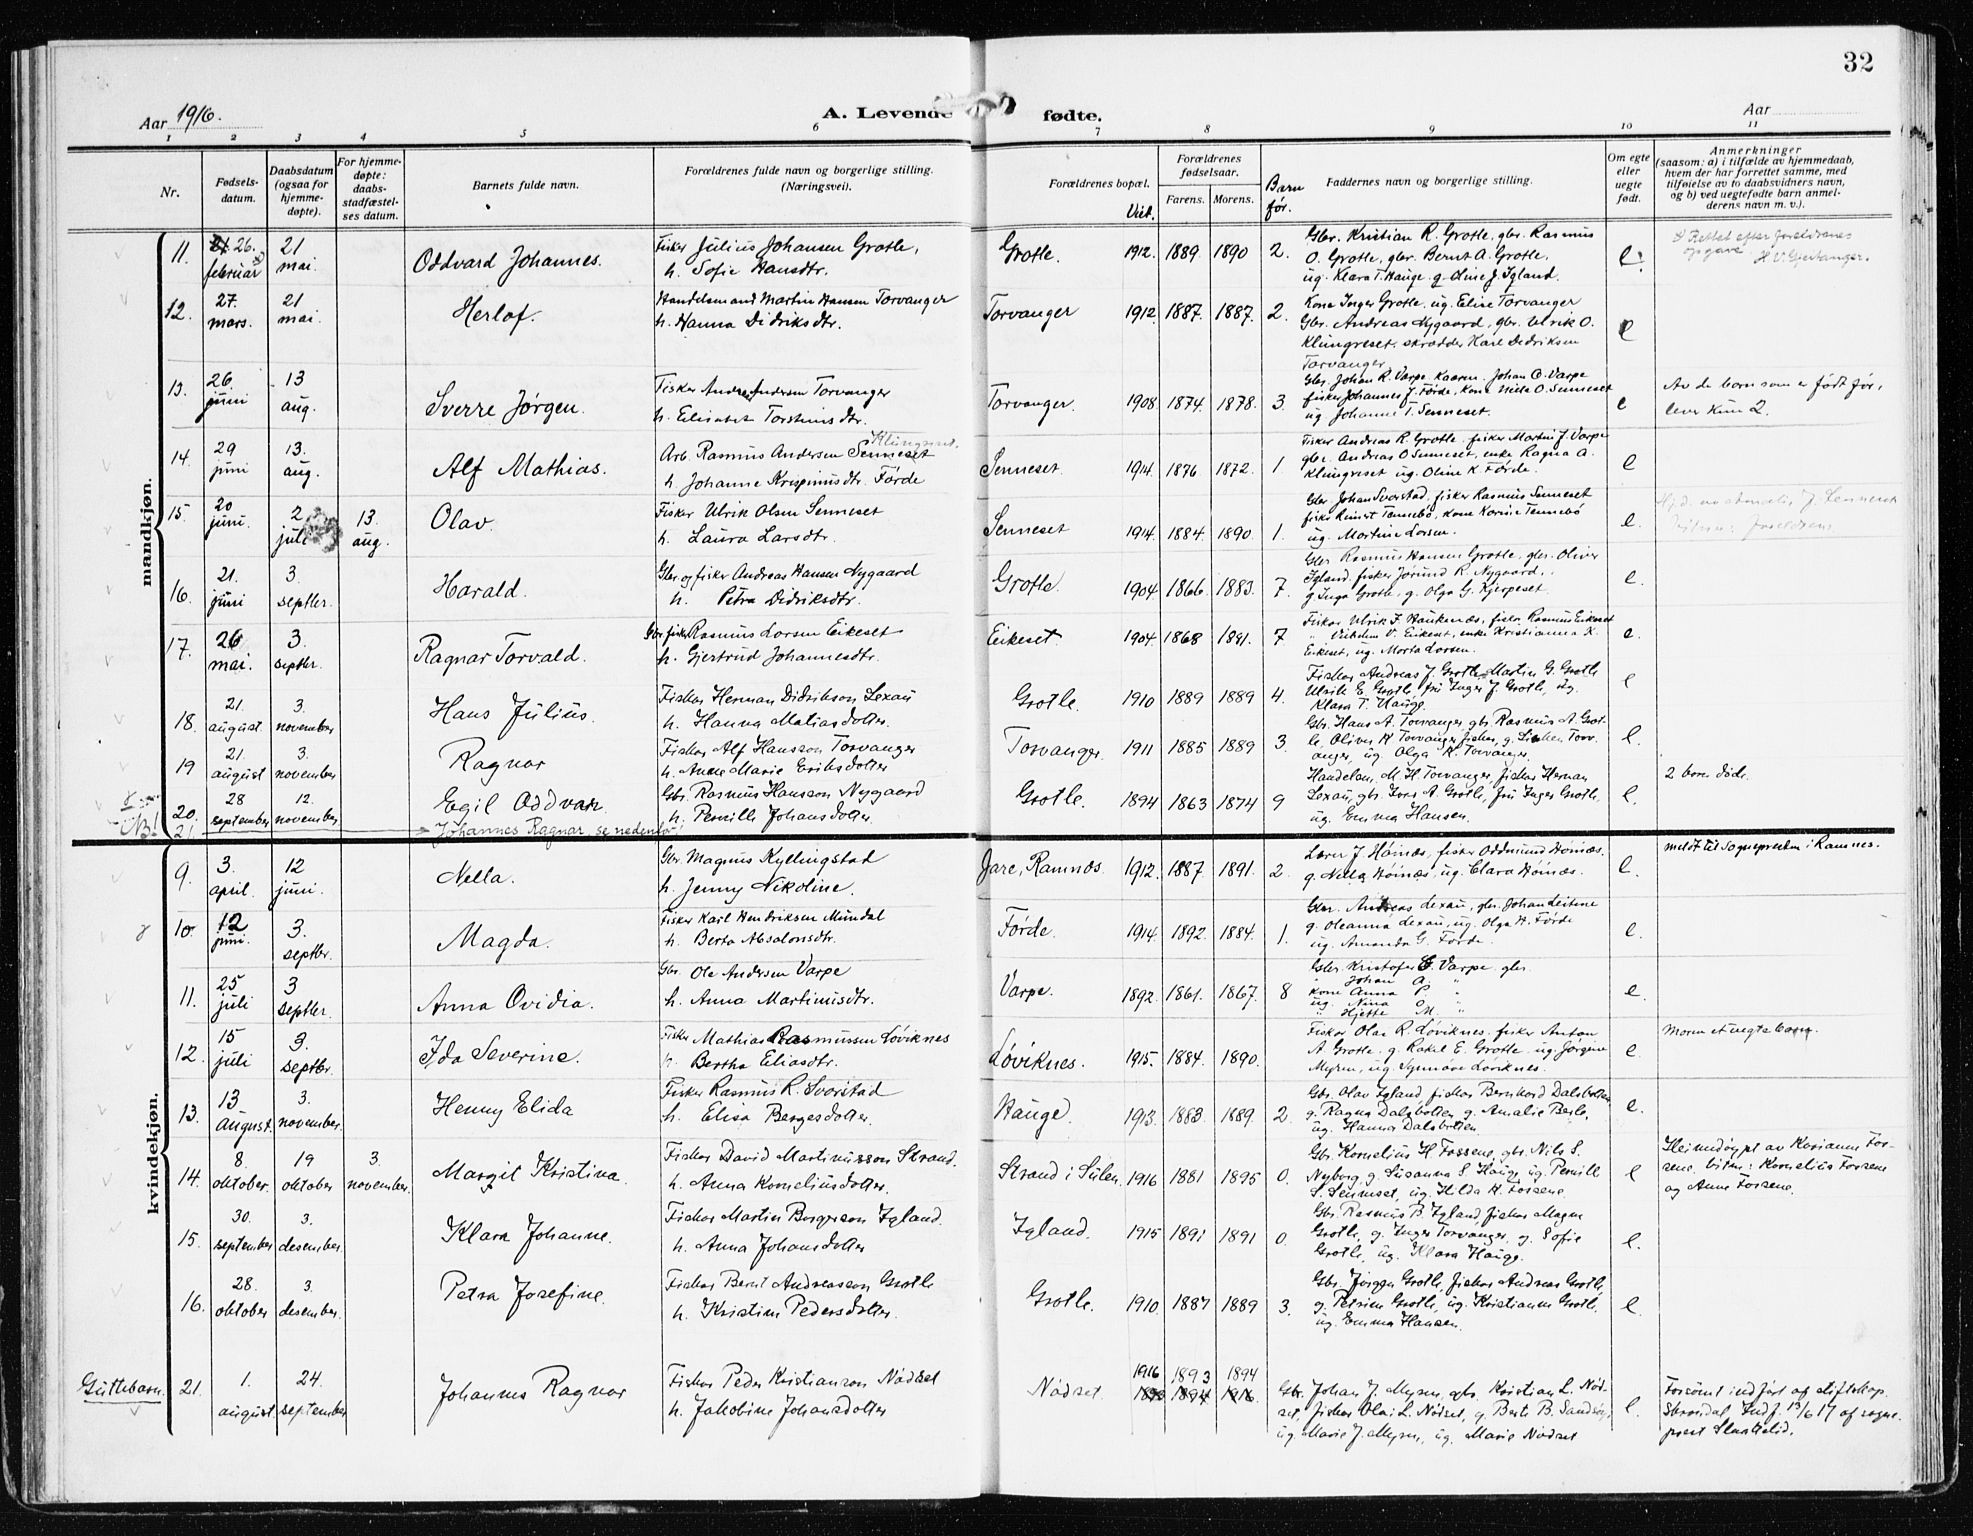 32
Aar 1916.
A. Levende fødte.
Aar
1 2 3 4 5 6 7 8 9 10 11
Nr.
Fødsels-
datum.
Daabsdatum
(ogsaa for
hjemme-
døpte).
For hjemme-
døpte:
daabs-
stadfæstel-
ses datum.
Barnets fulde navn.
Forældrenes fulde navn og borgerlige stilling.
(Næringsvei).
Forældrenes bopæl.
Viet.
Forældrenes
fødselsaar.
Farens. Morens.
Barn
før.
Faddernes navn og borgerlige stilling.
Om egte
eller
uegte
født.
Anmerkninger
(saasom: a) i tilfælde av hjemmedaab,
hvem der har forrettet samme, med
tilføielse av to daabsvidners navn,
og b) ved uegtefødte barn anmel-
derens navn m. v.).
mandkjøn.
11. 26. februar 21 mai. Oddvard Johannes.
Fisker Julius Johansen Grotle,
h. Sofie Hansdtr.
Grotle. 1912. 1889 1890 2.
Gbr. Kristian R. Grotle, gbr. Rasmus
O. Grotle, gbr. Bernt A. Grotle,
ug. Klara T. Hauge g. Oline J. Igland.
e.
Rettet efter foreldrenes
opgave
12. 27. mars. 21 mai. Herlof.
Handelsmand Martin Hansen Torvanger
h. Hanna Didriksdtr.
Torvanger 1912. 1887. 1887. 2.
Kone Inger Grotle, ug. Elise Torvanger
Gbr. Andreas Nygaard, gbr. Ulrik O.
Klungreset. skrædder Karl Didriksen
Torvanger
e
13. 26. juni 13 aug. Sverre Jørgen.
Fisker Andreas Andersen Torvanger
h. Elisabet Torsteinsdtr.
Torvanger. 1908. 1874. 1878. 3.
Gbr. Johan R. Varpe Kaaren Johan O. Varpe
fisker Johannes J. Førde, kone Nille O. Senneset
ug. Johanne T. Senneset.
e
Av de born som e født før,
lever kun 2.
14. 29 juni 13. aug. Alf Mathias.
Klungreset.
Arb. Rasmus Andersen Senneset
h. Johanne Krispinusdtr. Førde
Senneset. 1914. 1876. 1872. 1
Fisker Andreas R. Grotle. fisker Martin J. Varpe
gbr. Andreas O Senneset, enke Ragna A.
Klungreset ug. Oline K. Førde.
e
15. 20 juni. 2. juli 13. aug. Olav.
Fisker Ulrik Olsen Senneset
h. Laura Larsdtr.
Senneset 1914. 1884. 1890. 1.
Gbr. Johan Svorstad, fisker Rasmus Senneset
fisker Reinert Tennebø, kone Karine Tennebø
ug. Martine Larsen.
e.
16. 21. juni 3. septbr. Harald.
Gbr og fisker Andreas Hansen Nygaard
h. Petra Didriksdtr.
Grotle. 1904. 1866. 1883. 7.
Gbr. Rasmus Hansen Grotle, gbr. Oliver
Igland. fisker Jørund R. Nygaard,
g. Inga Grotle, g. Olga G. Kjerpeset.
e.
17. 26 mai. 3. septbr. Ragnar Torvald.
Gbr. fisker Rasmus Larsen Eikeset
h. Gjertrud Johannesdtr.
Eikeset 1904. 1868 1881. 7
Fisker Ulrik F. Hauknæs, fisker Rasmus Eikeset
" Vilhelm V. Eikeset, enke Kristianna K.
Eikeset, ug. Marta Larsen.
e.
18. 21. august 3. november Hans Julius.
Fisker Herman Didrikson Lexau
h. Hanna Matiasdotter.
Grotle. 1910 1889 1889 4.
Fisker Andreas J. Grotle, Martin G. Grotle
Ulrik E. Grotle, fru Inger J. Grotle, ug.
Klara T. Hauge.
e
19 21. august 3. november Ragnar
Fisker Alf Hansson Torvanger
h. Anne Marie Eriksdotter
Torvanger 1911 1885 1889 3.
Gbr. Hans A. Torvanger, gbr. Rasmus A. Grot-
le, Oliver H. Torvanger fisker, g. Lisken Torv-
anger, ug. Olga R. Torvanger.
e.
20. 28 september 12. november Egil Oddvar.
Gbr. Rasmus Hansson Nygaard
h. Pernille Johansdotter.
Grotle. 1894 1863 1874 9
Handelsm. M. H. Torvanger, fisker Herman
Lexau, gbr. Ivar A. Grotle, fru Inger Grotle,
ug. Emma Hansen.
e.
2 born døde.
NB! 21. Johannes Ragnar, se nedenfor!
kvindekjøn.
9. 3. april. 12 juni. Nella.
Gbr. Magnus Kyllingstad
h. Jenny Nikoline.
Jare, Ramnæs. 1912. 1887. 1891. 2.
Lærer J. Høinæs, fisker Oddmund Høinæs.
g. Nella Høinæs, ug. Clara Høinæs.
e.
meldt til sognepresten i Ramnes.
10. 12 juni. 3. septbr. Magda.
Fisker Karl Hendriksen Mundal
h. Berta Absalonsdtr.
Førde. 1914. 1892. 1884. 1.
Gbr. Andreas Lexau, gbr. Johan Leitene
g. Oleanna Lexau, ug. Olga H. Førde
ug. Amanda G. Førde.
e.
11. 25 juli 3 septbr. Anna Ovidia.
Gbr. Ole Andersen Varpe
h. Anna Martinusdtr.
Varpe. 1892. 1861. 1867. 8
Gbr. Kristofer E. Varpe gbr.
Johan A. "
kone Anna P. "
ug. Nina O. "
Hjette M. "
e.
12. 15 juli 3. septbr. Ida Severine.
Fisker Mathias Rasmussen Løviknes
h. Bertha Eliasdtr.
Løviknes. 1915. 1884. 1890.
Fisker Olav R. Løviknes. fisker Anton
A. Grotle. g. Rakel E. Grotle. ug. Jørgine
Myren, ug. Synnøve Løviknes.
e.
Moren et uegte barn.
13. 13 august. 3. november. Henny Elida
Fisker Rasmus R. Svorstad
h. Elisa Bergesdotter.
Hauge. 1913. 1883. 1889. 2.
Gbr. Olav Igland, fisker Bernhard Dalsbotten
g. Ragna Dalsbotten g. Amalie Berle,
ug. Hanna Dalsbotten.
e.
14. 8. oktober. 19 oktober 3. november. Margit Kristina.
Fisker David Martinusson Strand.
h. Anna Korneliusdotter.
Strand i Sulen. 1916 1881 1895 0.
Gbr. Kornelius H. Fossene, gbr. Nils S.
Nyborg, g. Susanna S. Hauge, ug. Pernille
S. Senneset, ug. Hilda K. Fossene.
e
Heimedøypt av Karianne Fos-
sene. vitne: Kornelius Fossene
og Anne Fossene.
15. 30. september 3. desember. Klara Johanne.
Fisker Martin Borgerson Igland.
h. Anna Johansdotter
Igland. 1915 1891 1891 0.
Gbr. Rasmus B. Igland, fisker Magne
Grotle, g. Inger Torvanger, g. Sofie
Grotle, ug. Klara Hauge.
e.
16. 28. oktober 3. desember. Petra Josefine.
Fisker Bernt Andreasson Grotle
h. Kristine Pedersdotter.
Grotle. 1910 1887 1889 3.
Gbr. Jørgen Grotle, fisker Andreas Grotle,
g. Petrine Grotle, ug. Kristianne Grotle,
ug. Emma Hansen.
e
Guttebarn. 21. 1. august 24. september Johannes Ragnar
Fisker Peder Kristianson Nødset
h. Jakobine Johansdotter
Nødset. 1916 1893 1894
Gbr. Johan J. Myren, gbr. Kristian L. Nød-
set, fisker Olai L. Nødset, g. Berte B. Sandsøy,
ug. Marie J. Myren, ug. Marie Nødset
e.
Forsømt indført af stiftskap.
Strømdal. Indf. 13/6 17 af sogne-
prest Skaatelid.